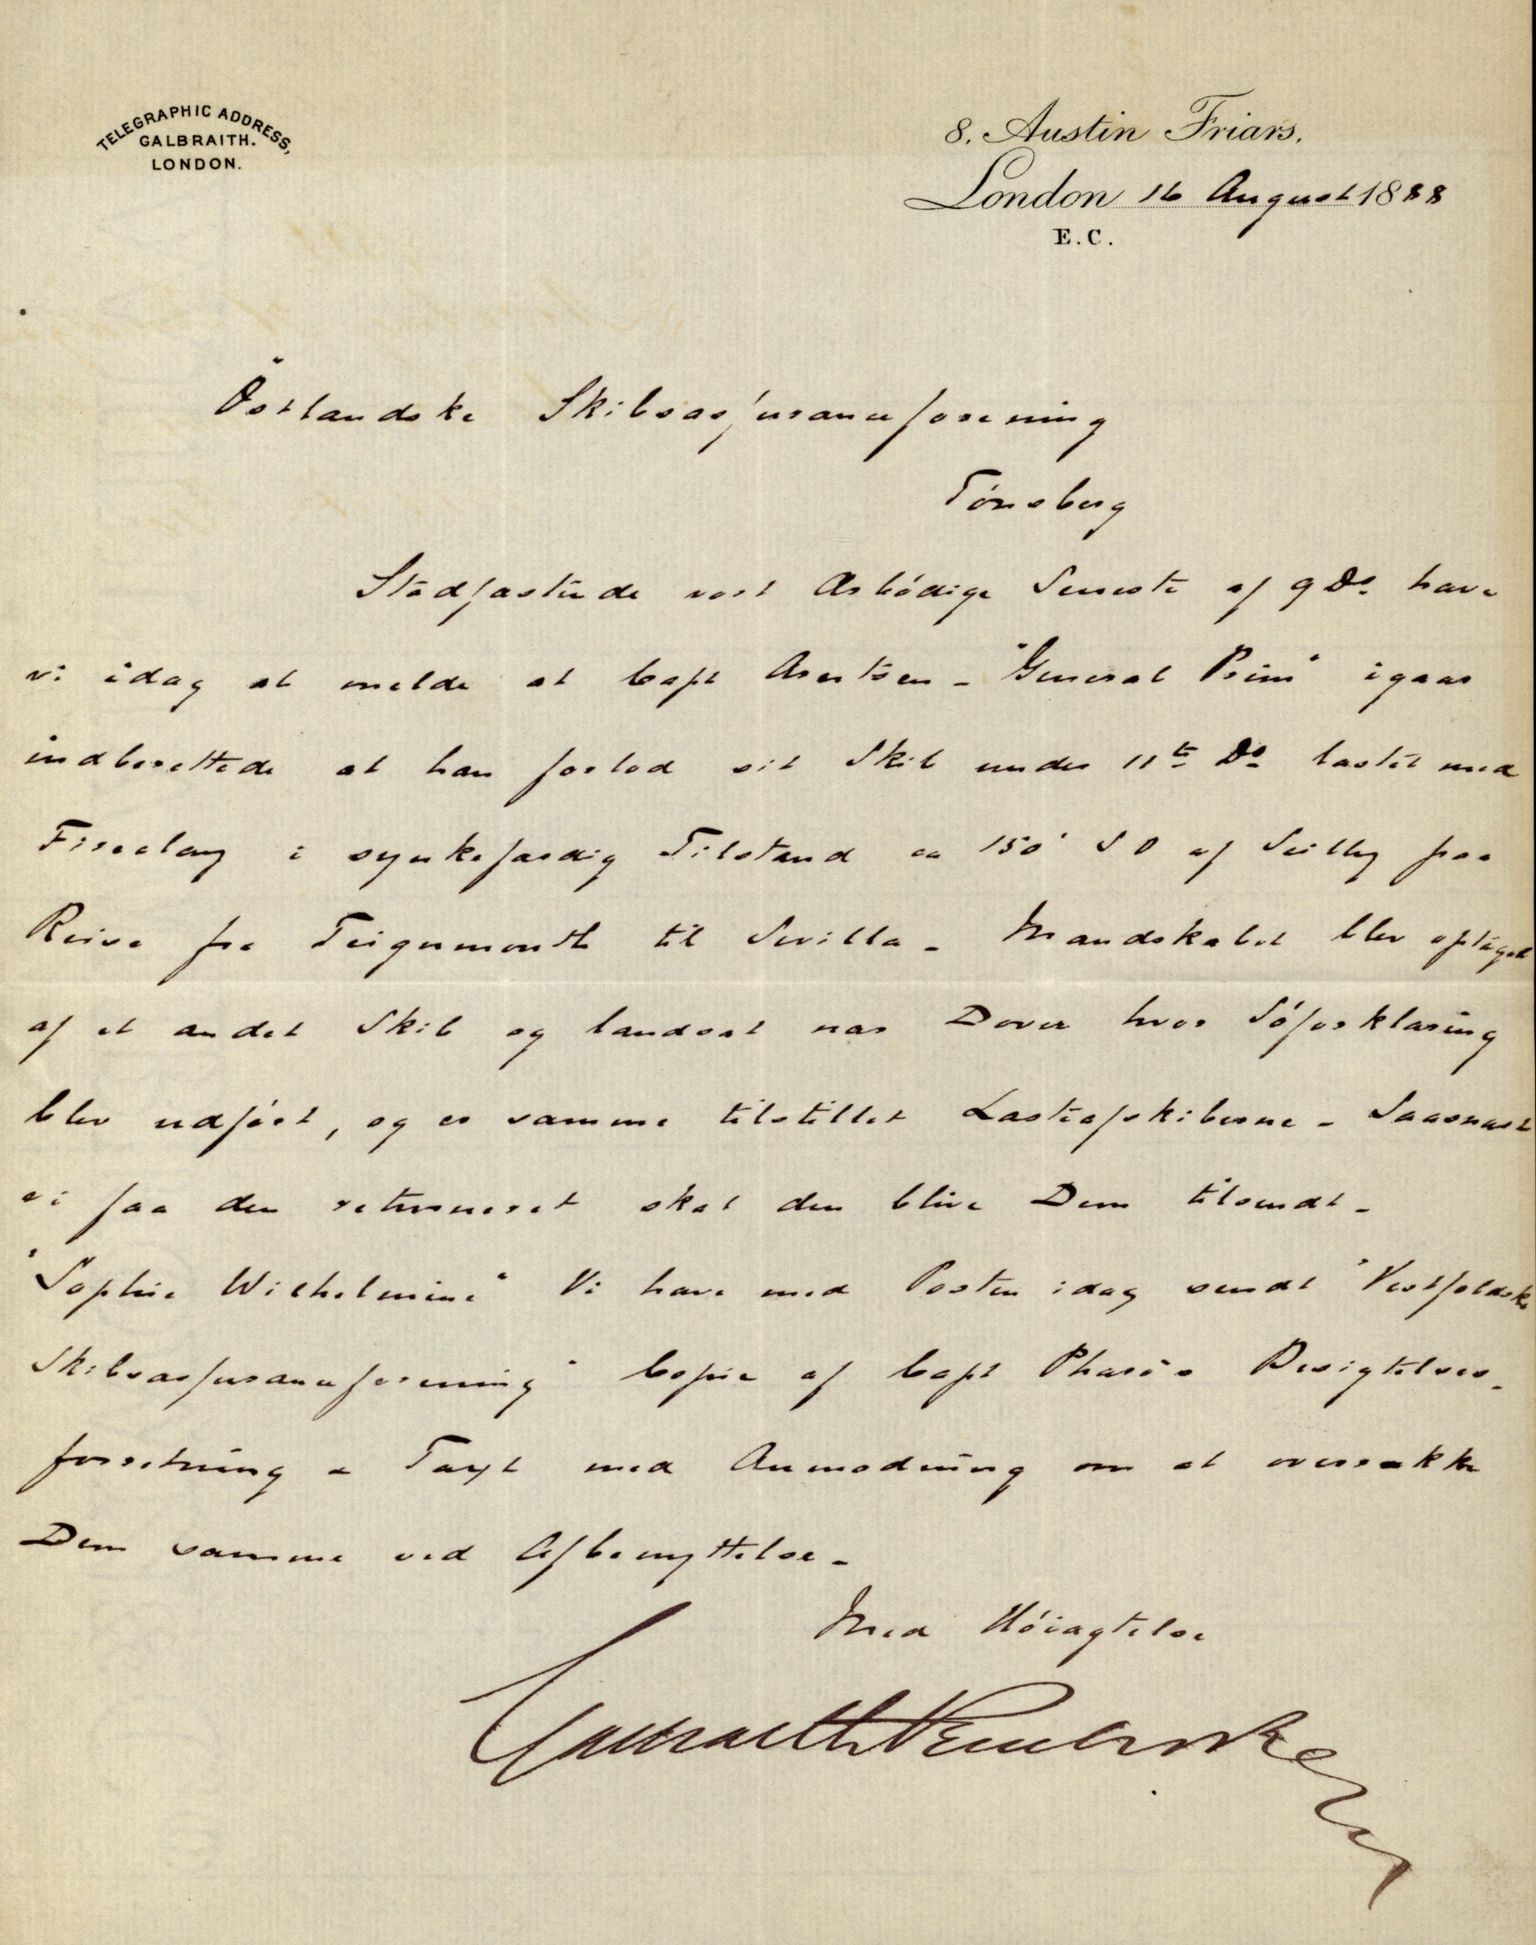 TELEGRAPHIC ADDRESS,
GALBRAITH.
LONDON.
8, Austin Friars,
London 16 August 1888
E.C.
Östlandske Skibsassuranceforening
Tönsberg
Stadfæstende vort Ærbödige Seneste af 9 Do. have
vi idag at melde at Capt Arentsen - "General Prim" igaar
indberettede at han forlod sit Skib under 11te Do lastet med
Fireclay i synkefærdig Tilstand ca 150' SO af Scilly paa
Reise fra Teignmouth til Sevilla - Mandskabet blev optaget
af et andet Skib og landsat nær Dover hvor Söforklaring
blev udfört, og er samme tilstillet Lasteafskiberne - Saasnart
vi faa den returneret skal den blive Dem tilsendt -
"Sophie Wilhelmine" Vi have med Posten idag sendt "Vestfoldske
Skibsassuranceforening" Copie af Capt Besigtelses-
forretning & Taxt med Anmodning om at overrække
Dem samme ved Afbenyttelse -
Med Höiagtelse
Galbraith Pembroke